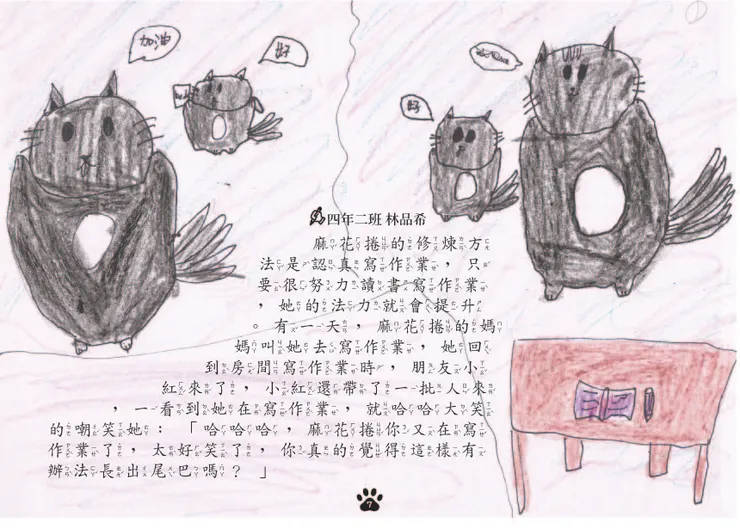 加油
好
好
四年二班 林品希
麻花捲的修煉方
法是認真寫作業，只
要很努力讀書寫作業
，她的法力就會提升
。有一天，麻花捲的媽
媽叫她去寫作業，她回
到房間寫作業時，朋友小
紅來了，小紅還帶了一批人來
，一看到她在寫作業，就哈哈大笑
的嘲笑她：「哈哈哈，麻花捲你又在寫
作業了，太好笑了，你真的覺得這樣有
辦法長出尾巴嗎？」
7